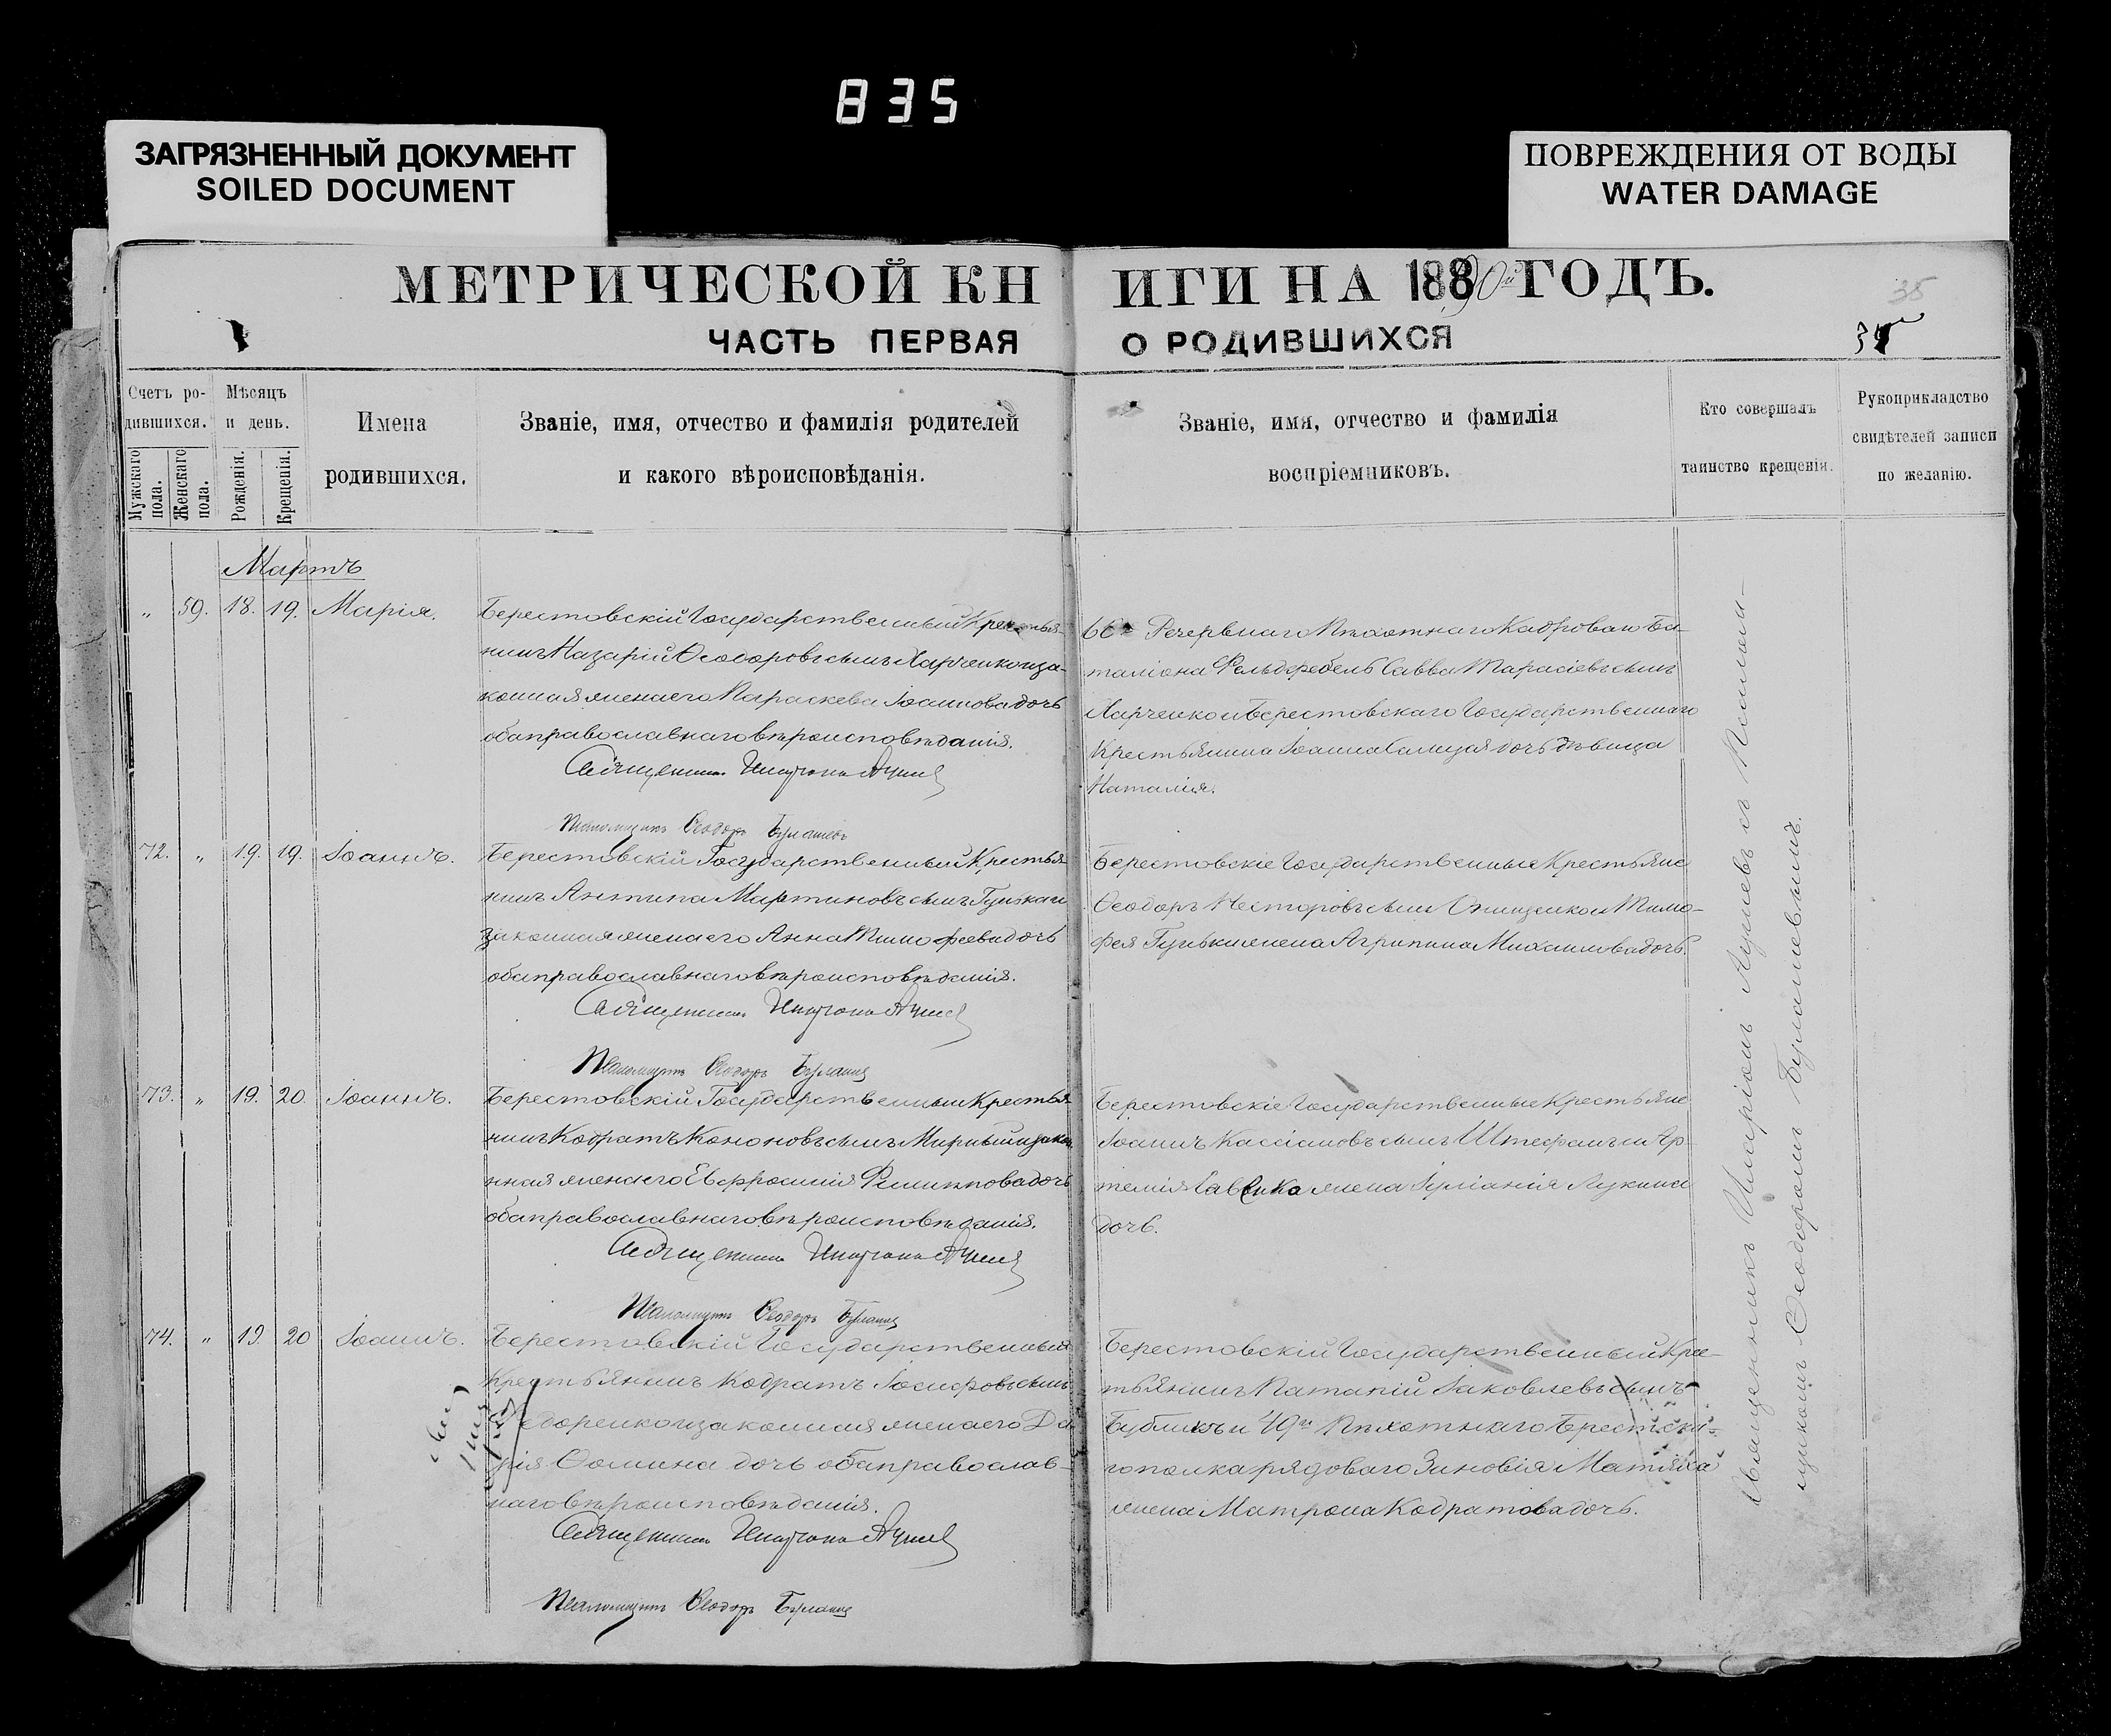 835
ЗАГРЯЗНЕННЫЙ ДОКУМЕНТ
SOILED DOCUMENT
ПОВРЕЖДЕНИЯ ОТ ВОДЫ
WATER DAMAGE
МЕТРИЧЕСКОЙ КН ИГИ НА 1890й ГОДЪ.
35
ЧАСТЬ ПЕРВАЯ О РОДИВШИХСЯ
Счетъ ро-
дившихся.
Мужскаго пола.
Женскаго пола.
Мѣсяцъ
и день.
Рожденія.
Крещенія.
Имена
родившихся.
Званіе, имя, отчество и фамилія родителей
и какого вѣроисповѣданія.
Званіе, имя, отчество и фамилія
воспріемниковъ.
Кто совершалъ
таинство крещенія.
Рукоприкладство
свидѣтелей записи
по желанію.
Мартъ
" 59. 18. 19. Марія.
Берестовскій Государственный Крестья-
нинъ Назарій Ѳеодоровъ сынъ Харченко и за-
конная жена его Параскева Іоаннова дочь
оба православнаго вѣроисповѣданія.
Священникъ
Псаломщикъ Ѳеодоръ
Резервнаго Пѣхотнаго Кадроваго Ба-
таліона Фельдфебель Савва Тарасіевъ сынъ
Харченко и Берестовскаго Государственнаго
Крестьянина Іоанна дочь дѣвица
Наталія.
72. " 19. 19. Іоаннъ.
Берестовскій Государственный Крестья-
нинъ Антипа Мартиновъ сынъ
законная жена его Анна Тимофеева дочь
оба православнаго вѣроисповѣданія.
Священникъ
Псаломщикъ Ѳеодоръ
Берестовскіе Государственные Крестьяне
Ѳеодоръ Несторовъ сынъ Онищенко и Тимо-
фея жена Агрипина Михаилова дочь.
73. " 19. 20. Іоаннъ.
Берестовскій Государственный Крестья-
нинъ Кодратъ Кононовъ сынъ Мирный и закон-
ная жена его Евфросинія Филиппова дочь
оба православнаго вѣроисповѣданія.
Священникъ
Псаломщикъ Ѳеодоръ
Берестовскіе Государственные Крестьяне
Іоаннъ Кассіановъ сынъ Штефанъ и Ар-
темія Савенка жена Іуліанія Лукина
дочь.
74. " 19. 20 Іоаннъ.
Берестовскій Государственный
Крестьянинъ Кодратъ Іосифовъ сынъ
и законная жена его Да-
рія Ѳомина дочь оба православ-
наго вѣроисповѣданія.
Священникъ
Псаломщикъ Ѳеодоръ
Берестовскій Государственный Крес-
тьянинъ Патапій Іаковлевъ сынъ
Бубликъ и 49го Пѣхотнаго Брестска-
го полка рядоваго Зиновія
жена Матрона Кодратова дочь.
Священникъ Иларіонъ съ Псалом-
щикомъ Ѳеодоромъ